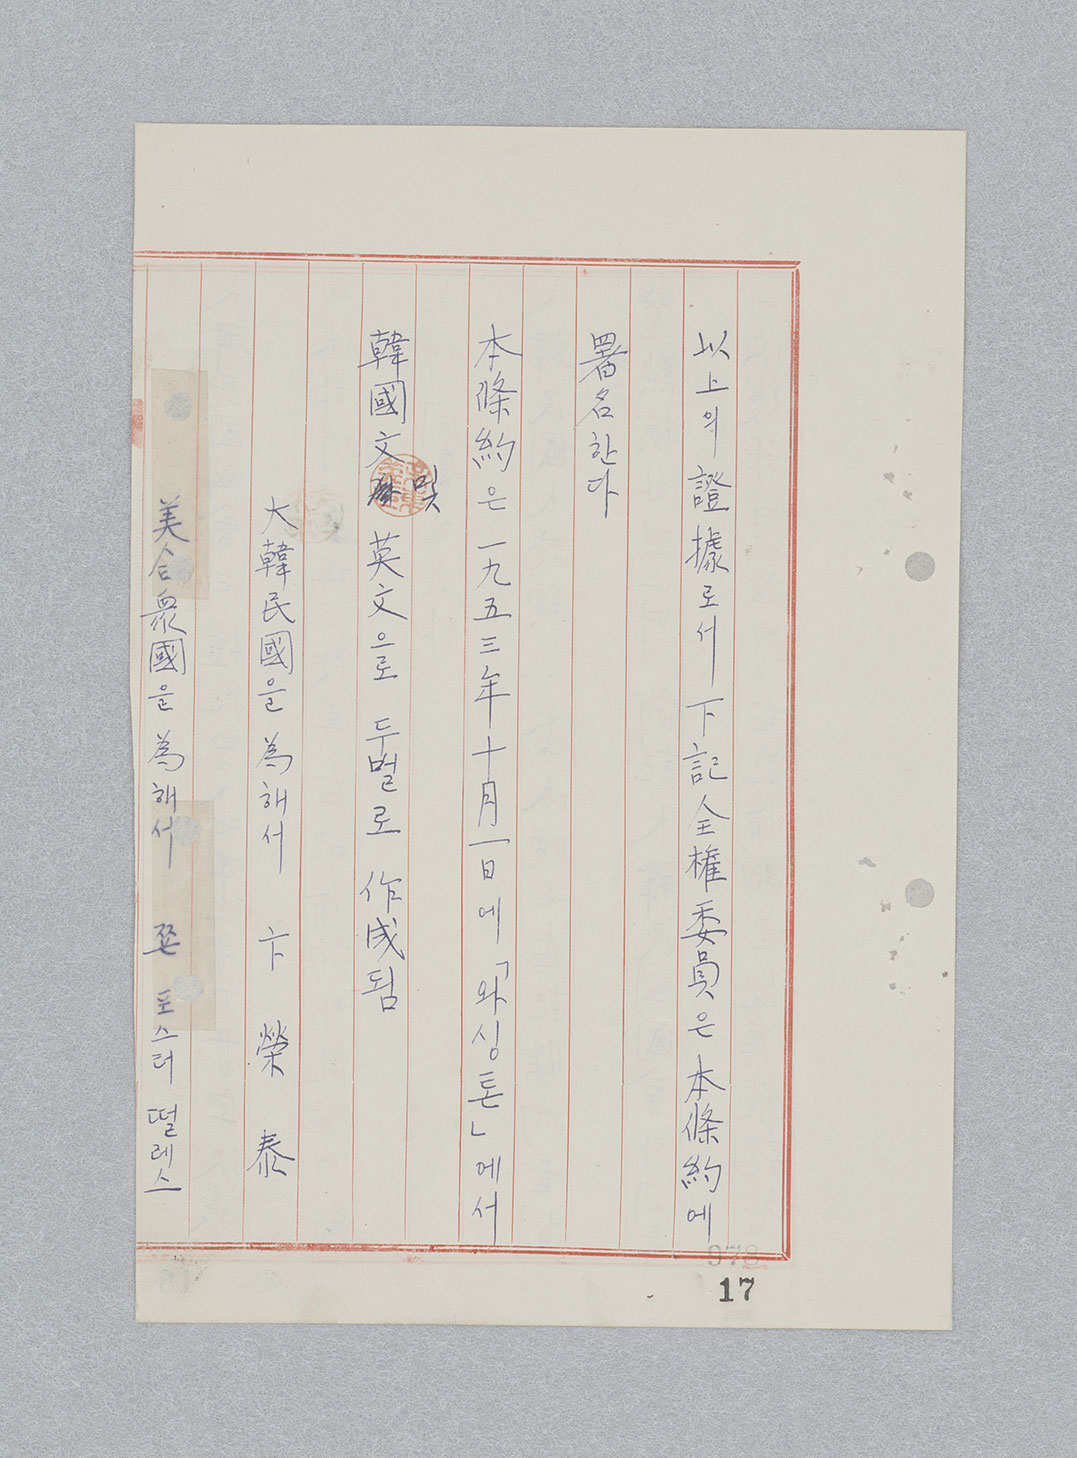 以上의 證據로서 下記 全權委員은 本條約에
署名한다
本條約은 一九五三年 十月 一日에 「와싱톤」에서
韓國文 및 英文으로 두벌로 作成됨
大韓民國을 為해서 卞 榮 泰
美合衆國을 為해서 쫀 포스터 떨레스
978
17